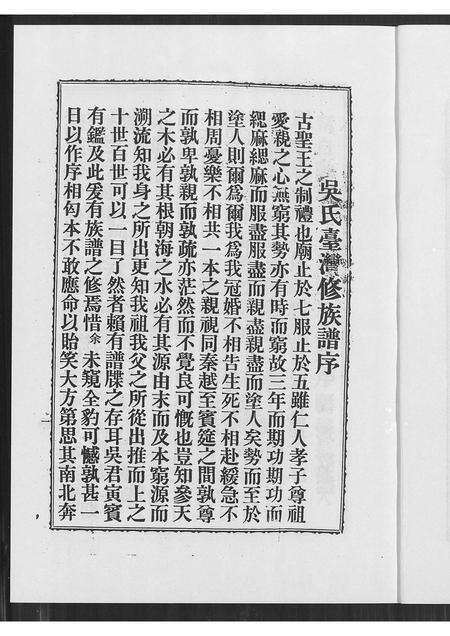 吳氏臺灣修族譜序
古聖王之制禮也廟止於七服止於五雖仁人孝子尊祖
愛親之心無窮其勢亦有時而窮故三年而期功期功而
緦麻緦麻而服盡服盡而親盡親盡而塗人矣勢而至於
塗人則爾爲爾我爲我冠婚不相告生死不相赴緩急不
相周憂樂不相共一本之親視同秦越至賓筵之間孰尊
而孰卑孰親而孰疏亦茫然而不覺良可慨也豈知參天
之木必有其根朝海之水必有其源由末而及本窮源而
溯流知我身之所出更知我祖我父之所從出推而上之
十世百世可以一目了然者賴有譜牒之存耳吳君寅賓
有鑑及此爰有族譜之修焉惜余未窺全豹可憾孰甚一
日以作序相匄本不敢應命以貽笑大方第思其南北奔